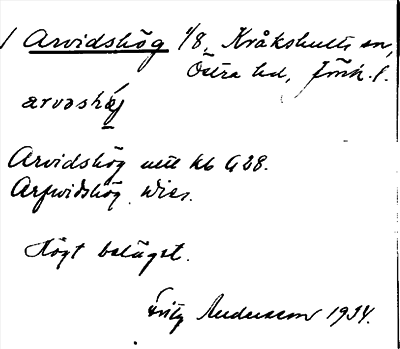 Arvidshög 1/8, Kråkshults sn,
Östra hd, Jönk. l.
arvəshög
Arvidshög utt kb 628.
Arfwidshög Wies.
Högt beläget.
Fritz Andersson 1934.